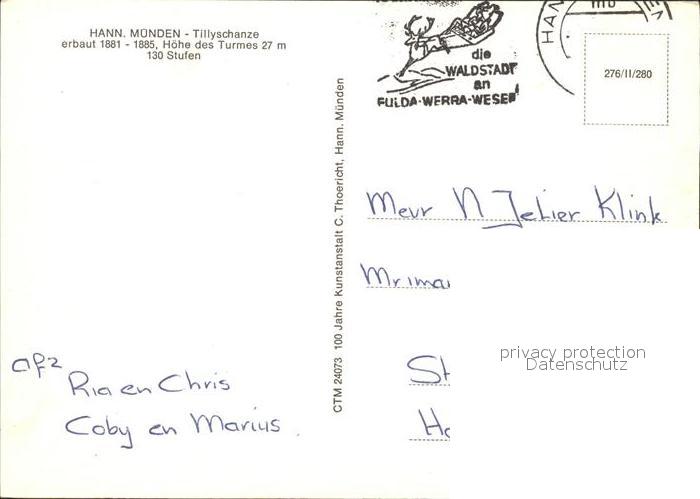 HANN. MÜNDEN - Tillyschanze
erbaut 1881 - 1885, Höhe des Turmes 27 m
130 Stufen
die
WALDSTADT
an
FULDA-WERRA-WESER
HAN
276/II/280
CTM 24073 100 Jahre Kunstanstalt C. Thoericht, Hann. Münden
Mevr N Jetier Klink
St
privacy protection
Datenschutz
afz
Ria en Chris
Coby en Marius